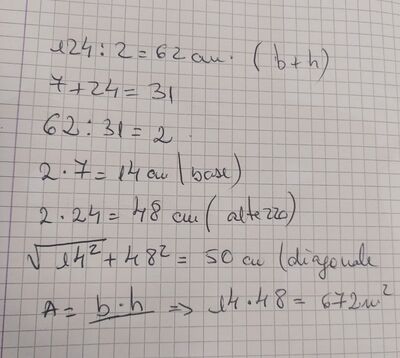 124 : 2 = 62 cm. (b+h)
7 + 24 = 31
62 : 31 = 2
2 · 7 = 14 cm (base)
2 · 24 = 48 cm (altezza)
√14² + 48² = 50 cm (diagonale
A = b · h => 14 · 48 = 672 m²